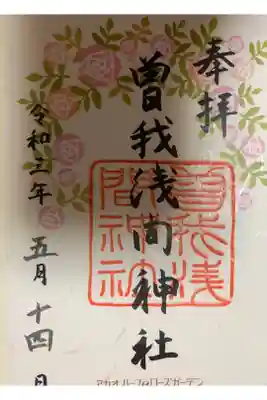 奉拝
曽我浅间神社
曽我浅間神社
令和三年 五月十四日
アカオハーブ&ローズガーデン